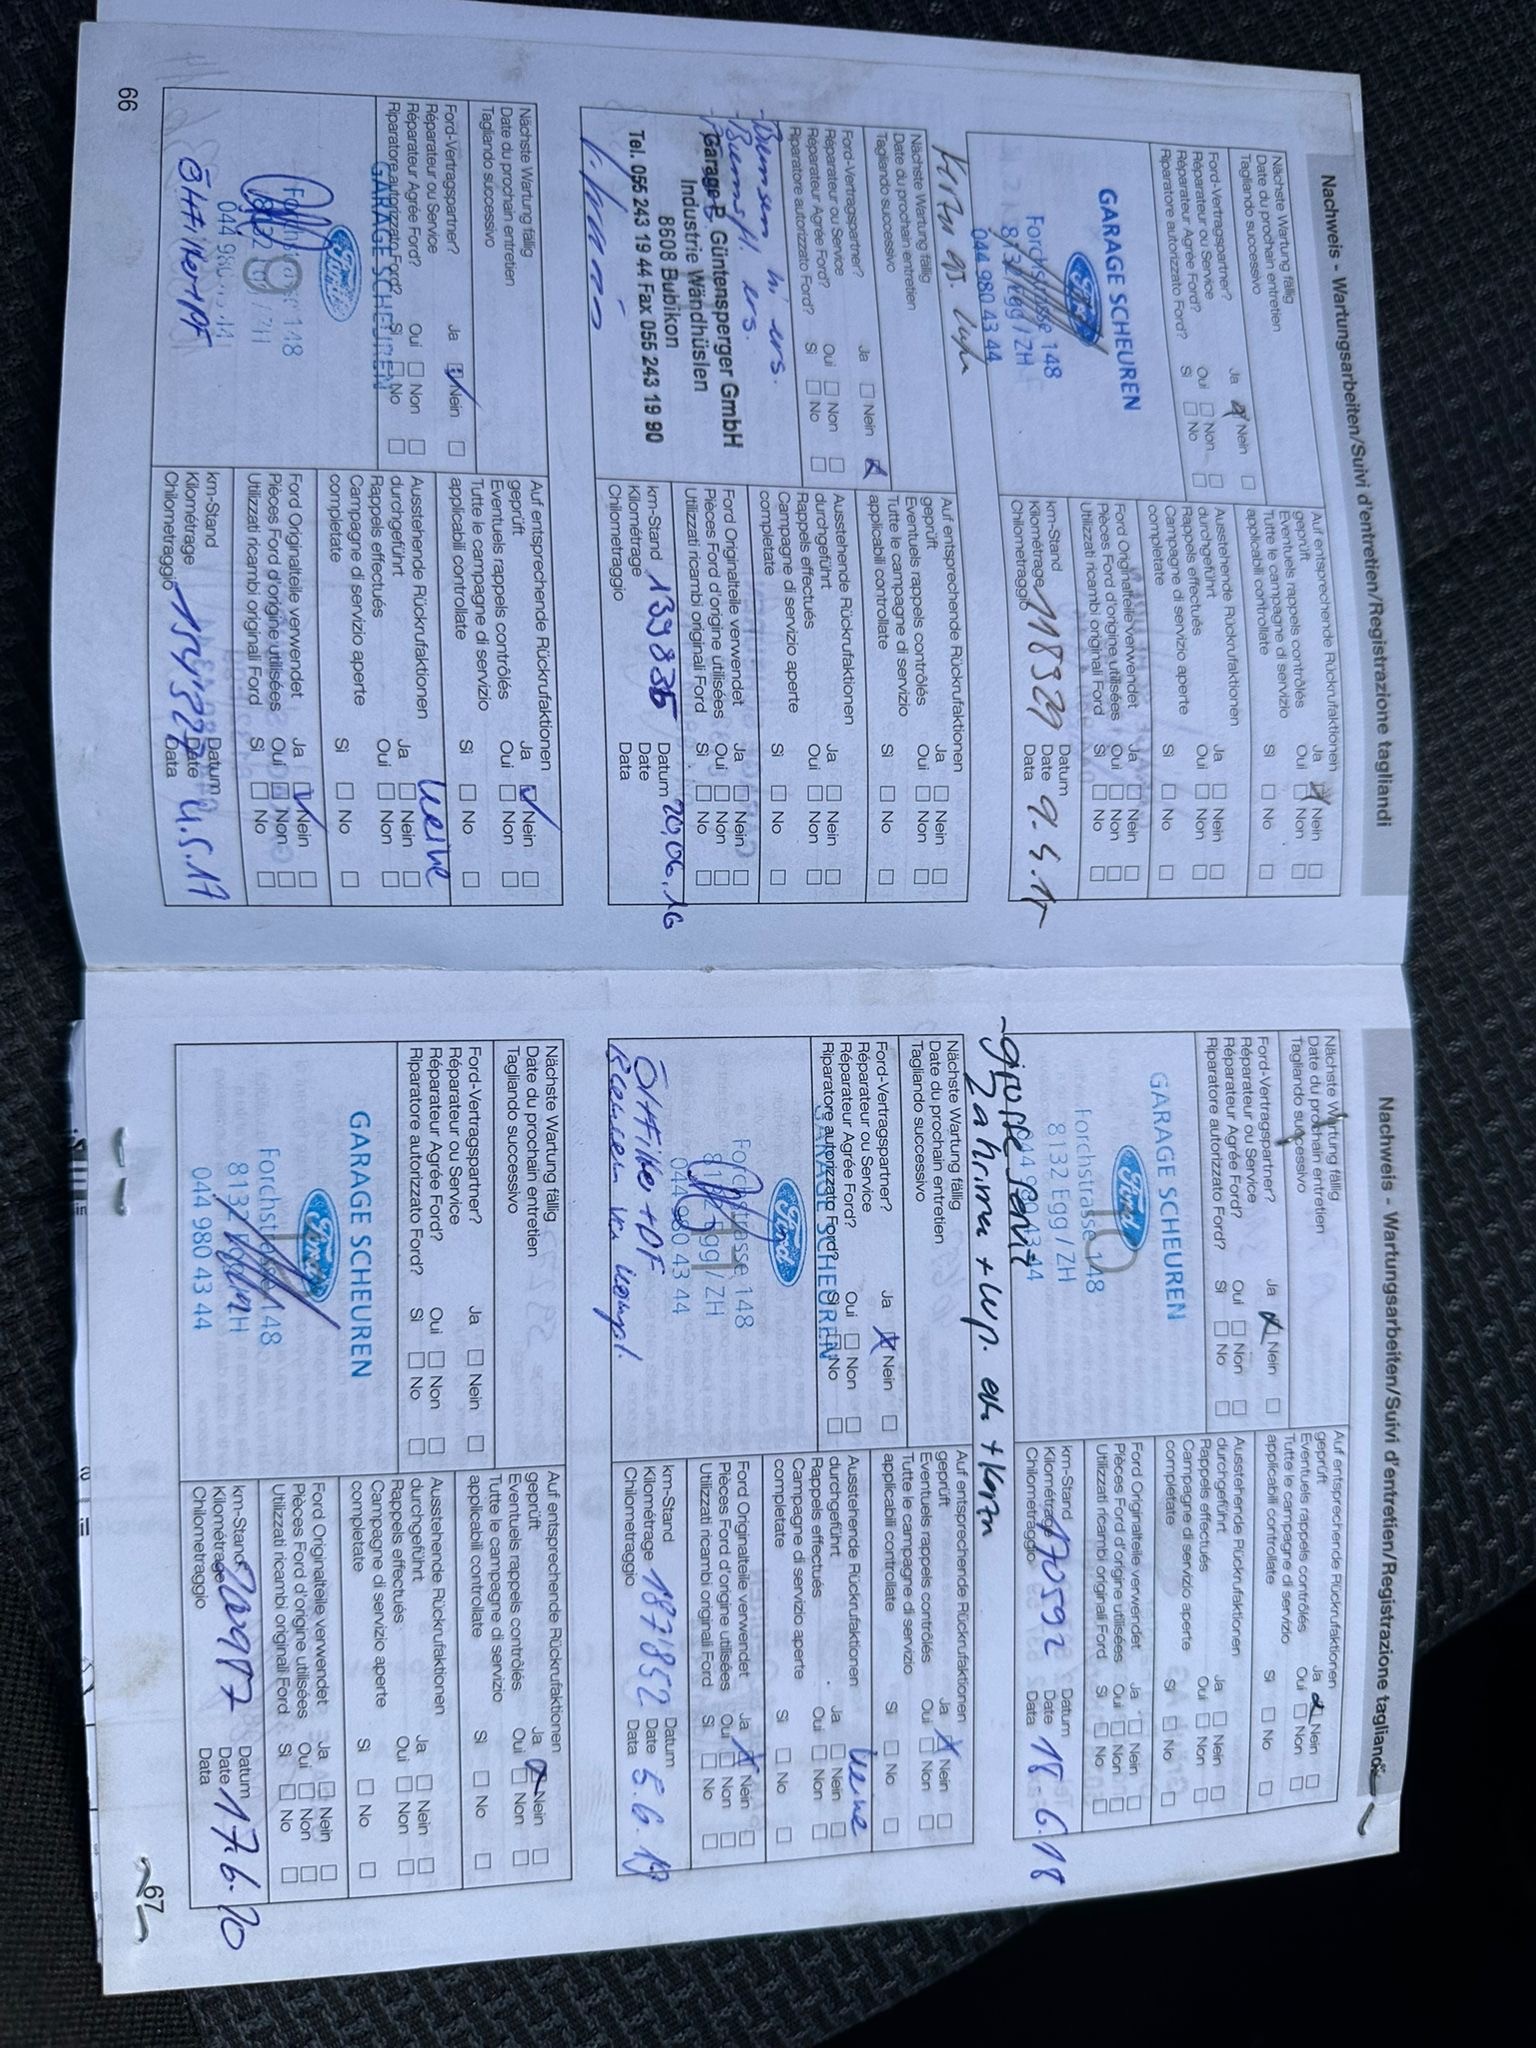 Nachweis - Wartungsarbeiten/Suivi d'entretien/Registrazione tagliandi
Nächste Wartung fällig
Date du prochain entretien
Tagliando successivo
Ford-Vertragspartner? Ja Nein
Réparateur ou Service
Réparateur Agrée Ford? Oui Non
Riparatore autorizzato Ford? Si No
GARAGE SCHEUREN
Ford
Forchstrasse 148
8132 Egg / ZH
044 980 43 44
Auf entsprechende Rückrufaktionen
geprüft Ja Nein
Eventuels rappels contrôlés Oui Non
Tutte le campagne di servizio
applicabili controllate Si No
Ausstehende Rückrufaktionen
durchgeführt Ja Nein
Rappels effectués Oui Non
Campagne di servizio aperte
completate Si No
Ford Originalteile verwendet Ja Nein
Pièces Ford d'origine utilisées Oui Non
Utilizzati ricambi originali Ford Si No
km-Stand Datum
Kilométrage 118329 Date 9.5.15
Chilometraggio Data
Nächste Wartung fällig
Date du prochain entretien
Tagliando successivo
Ford-Vertragspartner? Ja Nein
Réparateur ou Service
Réparateur Agrée Ford? Oui Non
Riparatore autorizzato Ford? Si No
Bremsen hi ers.
Bremsfl. ers.
Garage P. Güntensperger GmbH
Industrie Wändhüslen
8608 Bubikon
Tel. 055 243 19 44 Fax 055 243 19 90
Auf entsprechende Rückrufaktionen
geprüft Ja Nein
Eventuels rappels contrôlés Oui Non
Tutte le campagne di servizio
applicabili controllate Si No
Ausstehende Rückrufaktionen
durchgeführt Ja Nein
Rappels effectués Oui Non
Campagne di servizio aperte
completate Si No
Ford Originalteile verwendet Ja Nein
Pièces Ford d'origine utilisées Oui Non
Utilizzati ricambi originali Ford Si No
km-Stand 139835 Datum 20.06.16
Kilométrage Date
Chilometraggio Data
Nächste Wartung fällig
Date du prochain entretien
Tagliando successivo
Ford-Vertragspartner? Ja Nein
Réparateur ou Service
Réparateur Agrée Ford? Oui Non
Riparatore autorizzato Ford? Si No
GARAGE SCHEUREN
Ford
148
Ölfilter + PF
Auf entsprechende Rückrufaktionen
geprüft Ja Nein
Eventuels rappels contrôlés Oui Non
Tutte le campagne di servizio
applicabili controllate Si No
Ausstehende Rückrufaktionen keine
durchgeführt Ja Nein
Rappels effectués Oui Non
Campagne di servizio aperte
completate Si No
Ford Originalteile verwendet Ja Nein
Pièces Ford d'origine utilisées Oui Non
Utilizzati ricambi originali Ford Si No
km-Stand Datum
Kilométrage Date 4.5.17
Chilometraggio Data
66
Nachweis - Wartungsarbeiten/Suivi d'entretien/Registrazione tagliandi
Nächste Wartung fällig
Date du prochain entretien
Tagliando successivo
Ford-Vertragspartner? Ja Nein
Réparateur ou Service
Réparateur Agrée Ford? Oui Non
Riparatore autorizzato Ford? Si No
GARAGE SCHEUREN
Ford
Forchstrasse 148
8132 Egg / ZH
044 980 43 44
Auf entsprechende Rückrufaktionen
geprüft Ja Nein
Eventuels rappels contrôlés Oui Non
Tutte le campagne di servizio
applicabili controllate Si No
Ausstehende Rückrufaktionen
durchgeführt Ja Nein
Rappels effectués Oui Non
Campagne di servizio aperte
completate Si No
Ford Originalteile verwendet Ja Nein
Pièces Ford d'origine utilisées Oui Non
Utilizzati ricambi originali Ford Si No
km-Stand Datum
Kilométrage 170592 Date 18.6.18
Chilometraggio Data
- grosse Serv.
Zahnrima + Wp.
Nächste Wartung fällig
Date du prochain entretien
Tagliando successivo
Ford-Vertragspartner? Ja Nein
Réparateur ou Service
Réparateur Agrée Ford? Oui Non
Riparatore autorizzato Ford? Si No
GARAGE SCHEUREN
Ford
Forchstrasse 148
8132 Egg / ZH
044 980 43 44
Ölfilter + PF
Bremsen kompl.
Auf entsprechende Rückrufaktionen
geprüft Ja Nein
Eventuels rappels contrôlés Oui Non
Tutte le campagne di servizio
applicabili controllate Si No
Ausstehende Rückrufaktionen keine
durchgeführt Ja Nein
Rappels effectués Oui Non
Campagne di servizio aperte
completate Si No
Ford Originalteile verwendet Ja Nein
Pièces Ford d'origine utilisées Oui Non
Utilizzati ricambi originali Ford Si No
km-Stand Datum
Kilométrage 187'852 Date 5.6.19
Chilometraggio Data
Nächste Wartung fällig
Date du prochain entretien
Tagliando successivo
Ford-Vertragspartner? Ja Nein
Réparateur ou Service
Réparateur Agrée Ford? Oui Non
Riparatore autorizzato Ford? Si No
GARAGE SCHEUREN
Ford
Forchstrasse 148
8132 Egg / ZH
044 980 43 44
Auf entsprechende Rückrufaktionen
geprüft Ja Nein
Eventuels rappels contrôlés Oui Non
Tutte le campagne di servizio
applicabili controllate Si No
Ausstehende Rückrufaktionen
durchgeführt Ja Nein
Rappels effectués Oui Non
Campagne di servizio aperte
completate Si No
Ford Originalteile verwendet Ja Nein
Pièces Ford d'origine utilisées Oui Non
Utilizzati ricambi originali Ford Si No
km-Stand Datum
Kilométrage Date 17.6.20
Chilometraggio Data
67